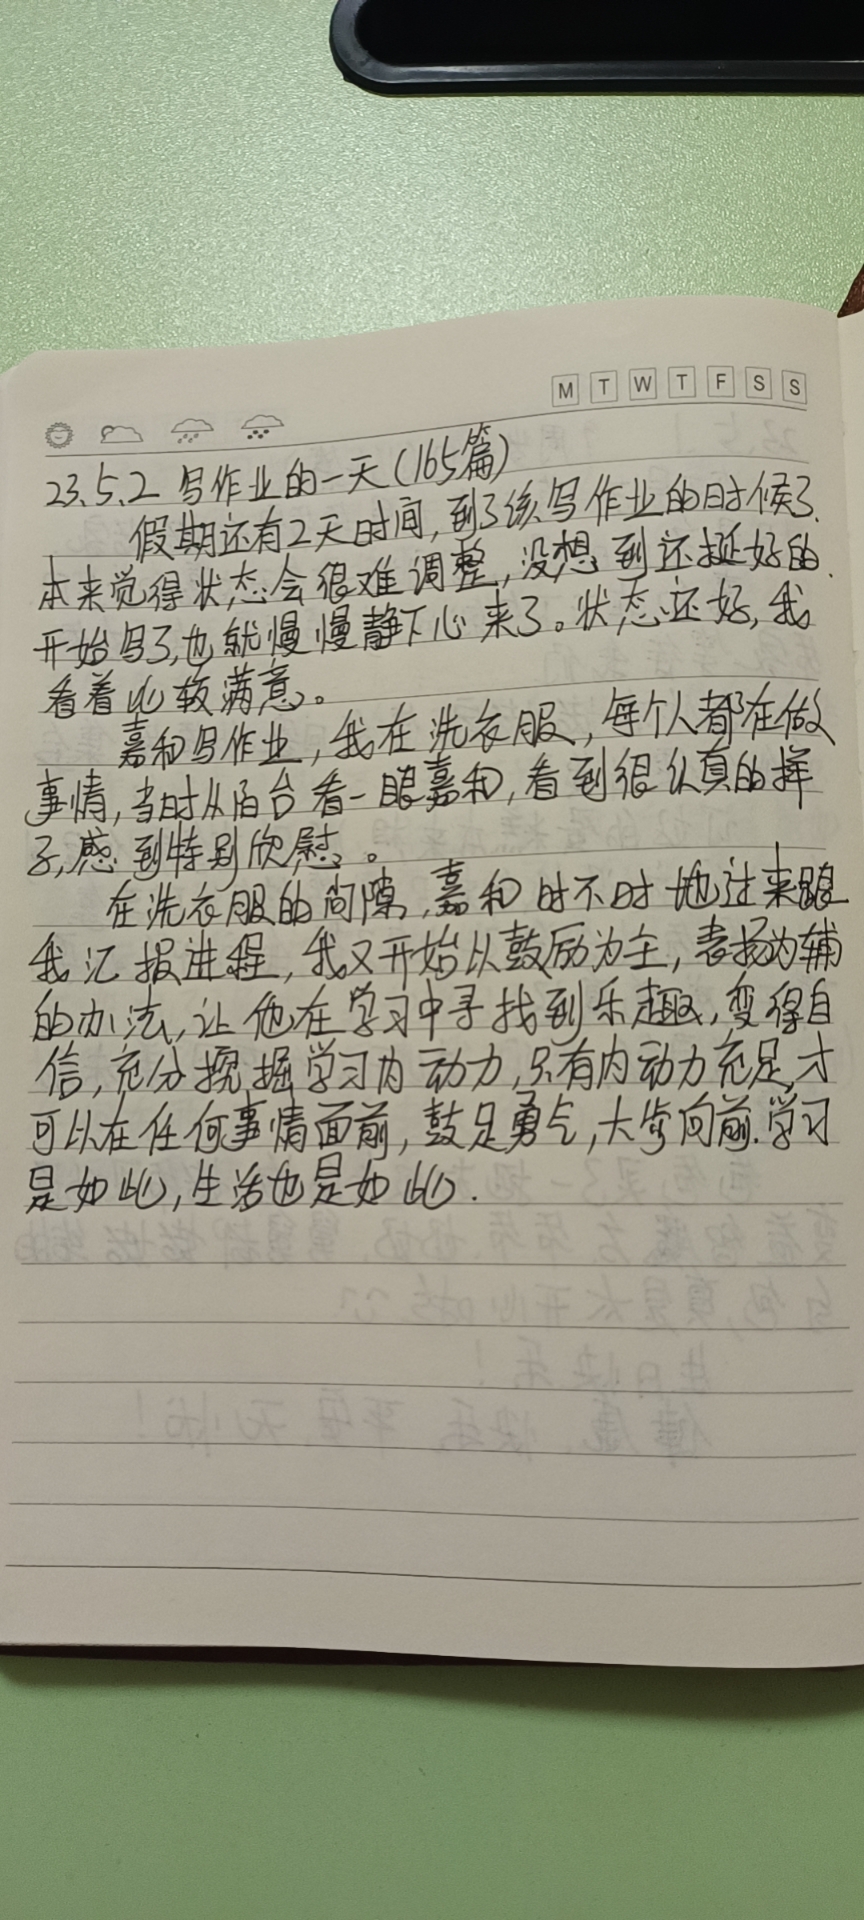 M T W T F S S
23.5.2 写作业的一天(165篇)
假期还有2天时间,到了该写作业的时候了.
本来觉得状态会很难调整,没想到还挺好的.
开始写了,也就慢慢静下心来了。状态还好,我
看着比较满意。
嘉和写作业,我在洗衣服,每个人都在做
事情,当时从阳台看一眼嘉和,看到很认真的样
子,感到特别欣慰。
在洗衣服的间隙,嘉和时不时地过来跟
我汇报进程,我又开始以鼓励为主,表扬为辅
的办法,让他在学习中寻找到乐趣,变得自
信,充分挖掘学习内动力,只有内动力充足,才
可以在任何事情面前,鼓足勇气,大步向前.学习
是如此,生活也是如此.